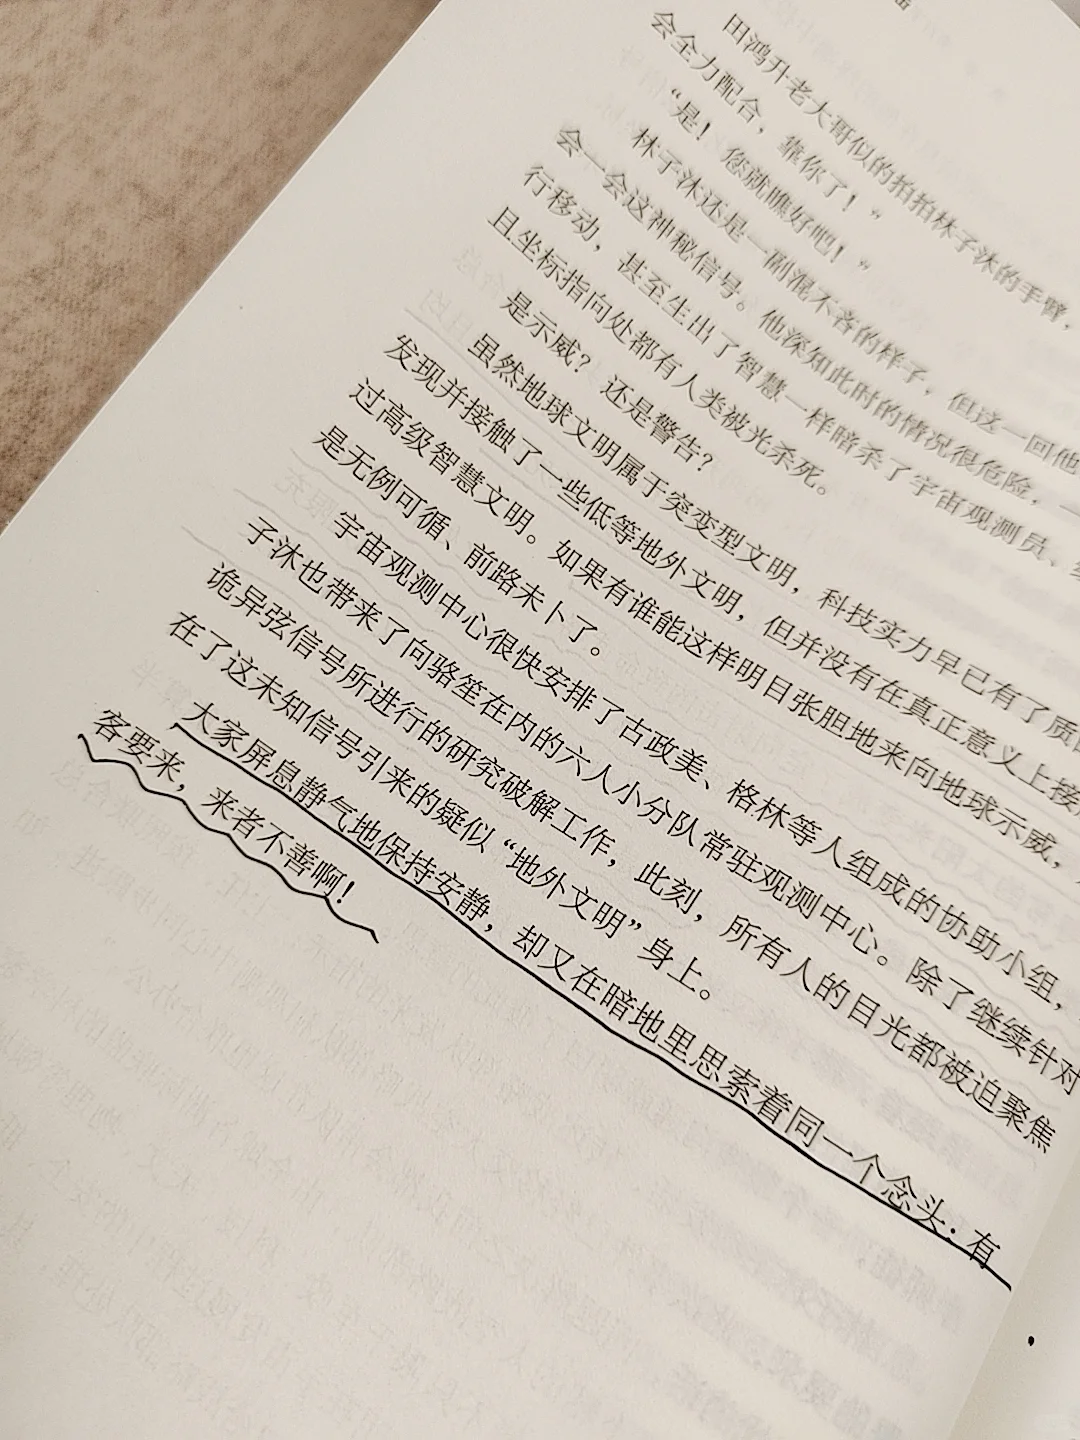 田鸿升老大哥似的拍拍林子沐的手臂，
会全力配合，靠你了！”
“是！您就瞧好吧！”
林子沐还是一副混不吝的样子，但这一回他
会一会这神秘信号。他深知此时的情况很危险，一
行移动，甚至生出了智慧一样暗杀了宇宙观测员、
且坐标指向处都有人类被光杀死。
是示威？还是警告？
虽然地球文明属于突变型文明，科技实力早已有了质
发现并接触了一些低等地外文明，但并没有在真正意义上接
过高级智慧文明。如果有谁能这样明目张胆地来向地球示威，
是无例可循、前路未卜了。
宇宙观测中心很快安排了古政美、格林等人组成的协助小组，
子沐也带来了向骆笙在内的六人小分队常驻观测中心。除了继续针对
诡异弦信号所进行的研究破解工作，此刻，所有人的目光都被迫聚焦
在了这未知信号引来的疑似“地外文明”身上。
大家屏息静气地保持安静，却又在暗地里思索着同一个念头：有
客要来，来者不善啊！